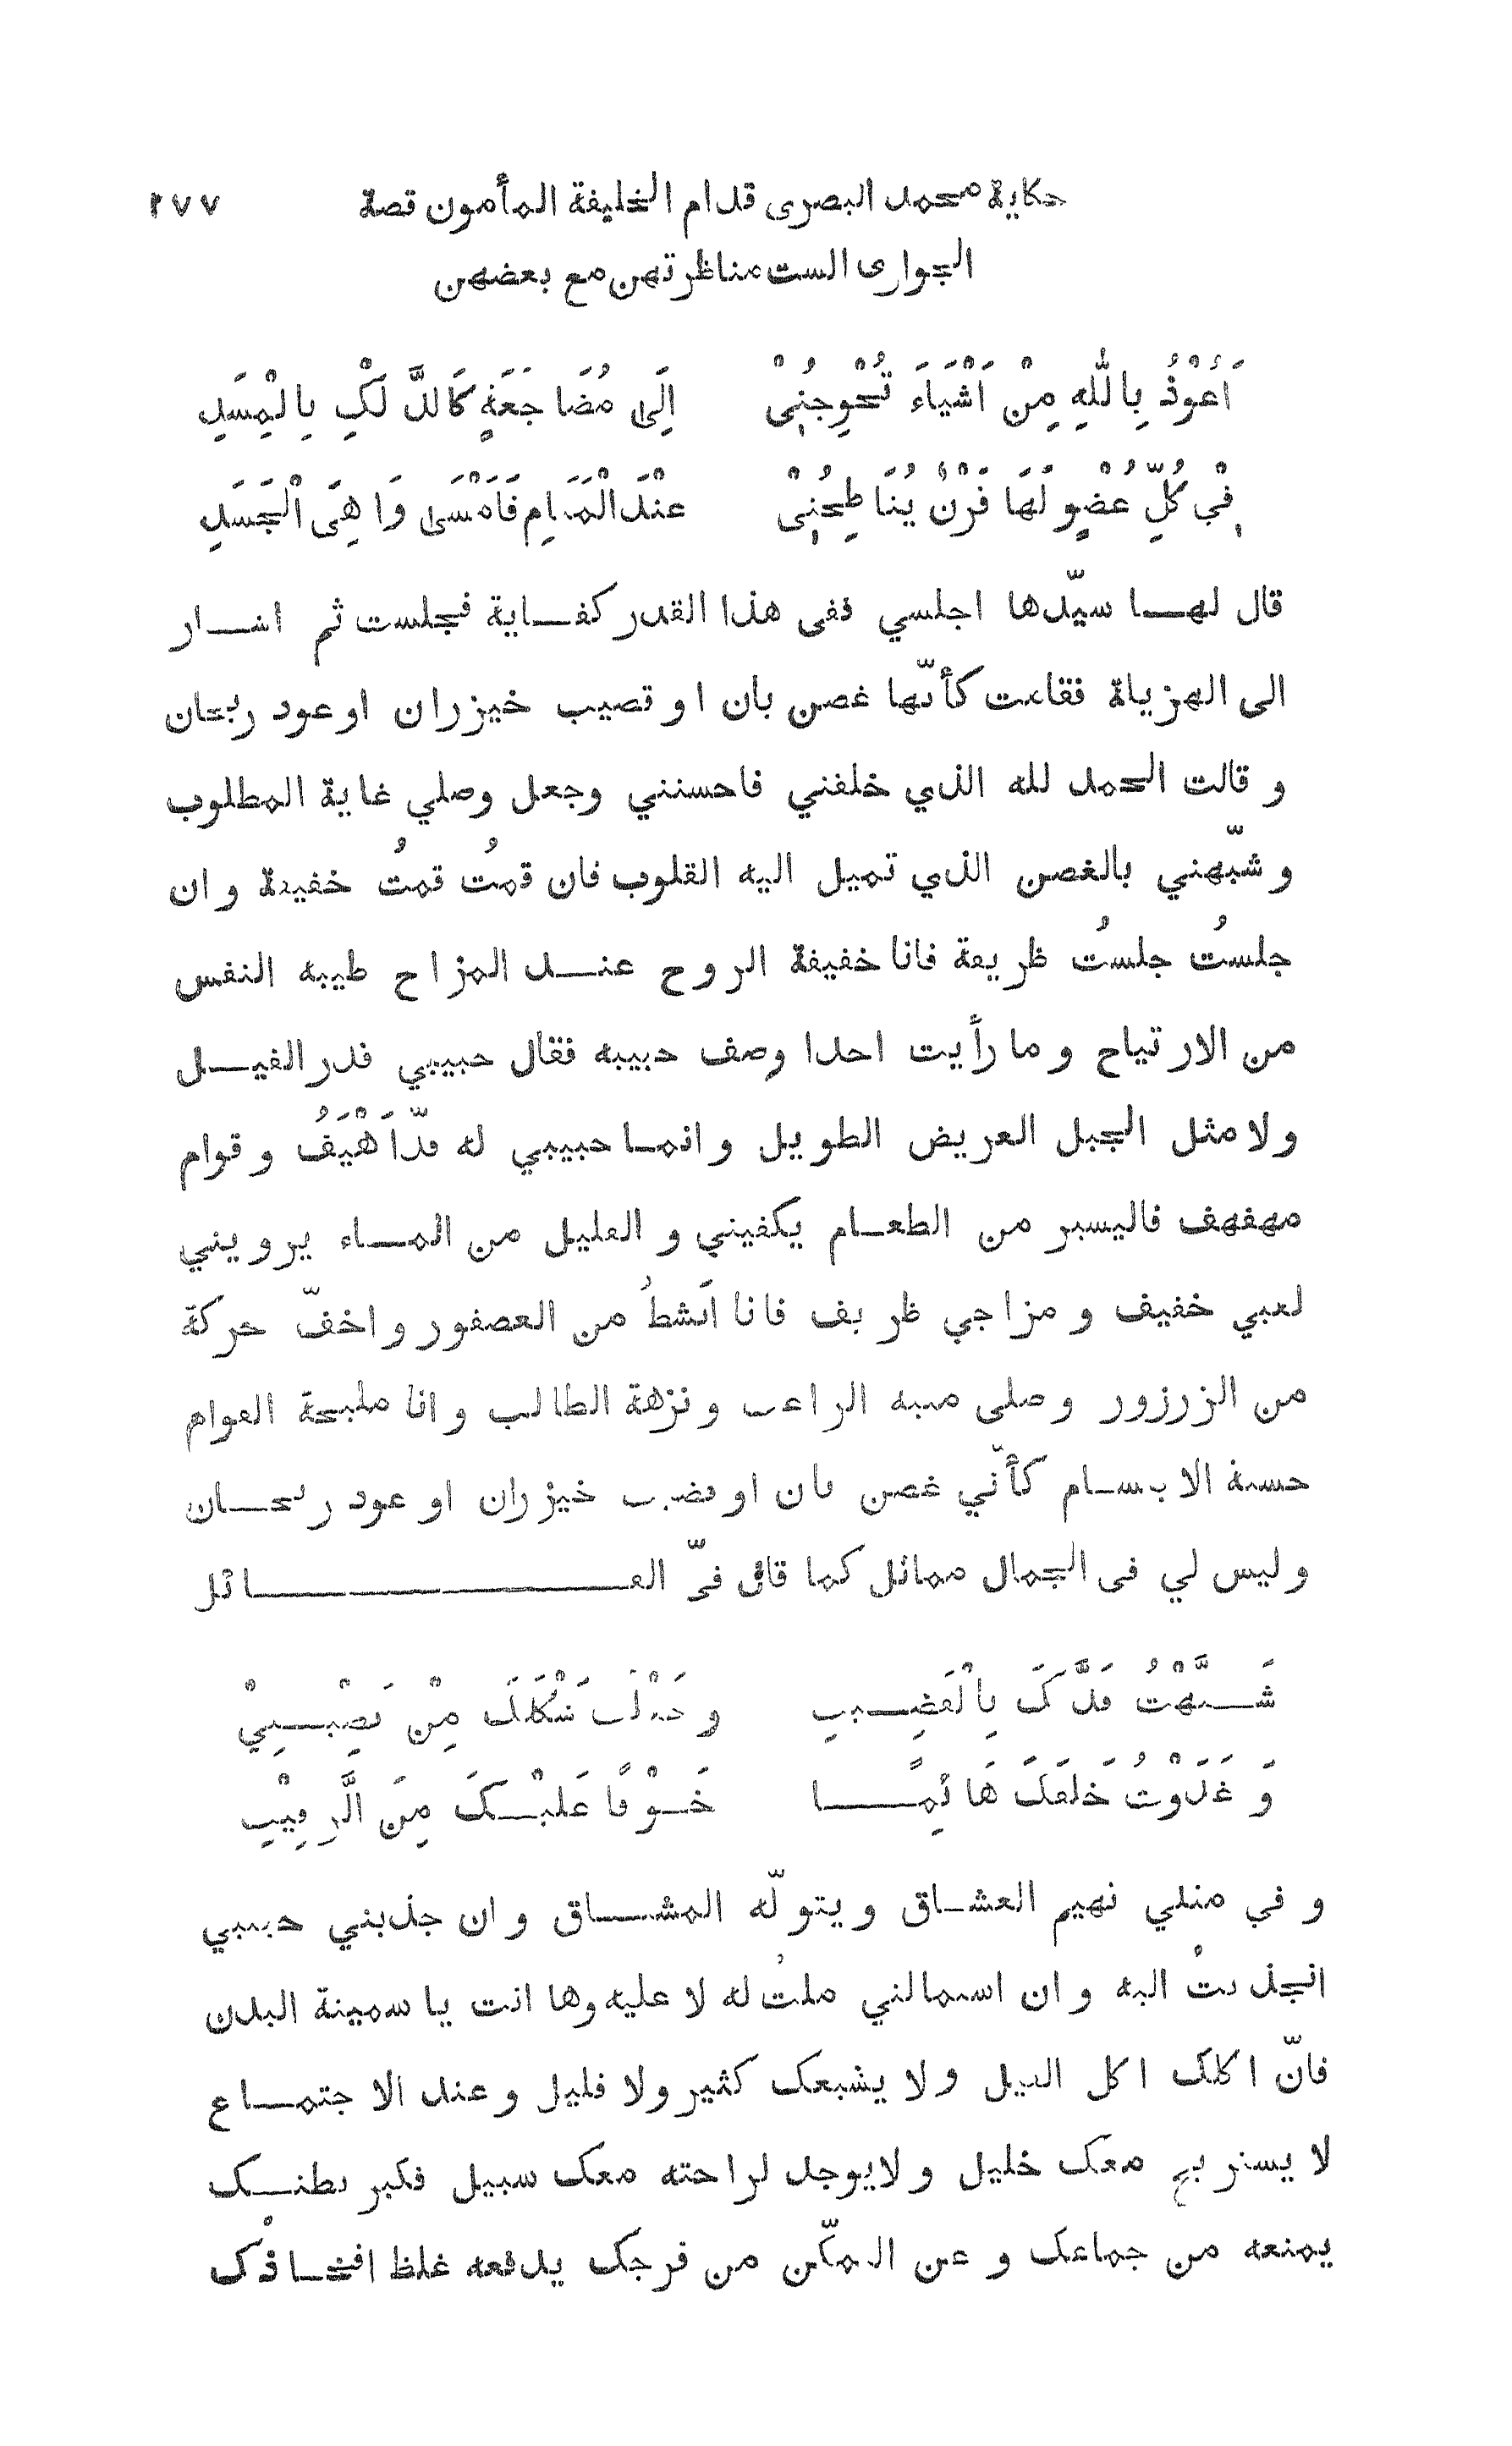 حكاية محمد البصرى قدام الخليفة المأمون قصة ٢٧٧
الجوارى الست مناظرتهن مع بعضهن
اَعُوْذُ بِاللهِ مِنْ اَشْيَاءَ تُحْوِجُنِيْ اِلَى مُضَاجَعَةٍ كَالدَّلْكِ بِالْمَسَدِ
فِيْ كُلِّ عُضْوٍ لَهَا قَرْنٌ يُنَاطِحُنِيْ عِنْدَ الْمَنَامِ فَاَمْسَى وَاهِىَ الْجَسَدِ
قال لهـا سيّدها اجلسي ففى هذا القدر كفـاية فجلست ثم اشـار
الى الهزيلة فقامت كأنّها غصن بان او قضيب خيزران او عود ريحان
و قالت الحمد لله الذي خلقني فاحسنني وجعل وصلي غاية المطلوب
و شبّهني بالغصن الذي تميل اليه القلوب فان قمتُ قمتُ خفيفة و ان
جلستُ جلستُ ظريفة فانا خفيفة الروح عنـد المزاح طيبه النفس
من الارتياح و ما رأيت احدا وصف حبيبه فقال حبيبي قدر الفيـل
ولا مثل الجبل العريض الطويل و انمـا حبيبي له قدّ اَهْيَفُ و قوام
مهفهف فاليسير من الطعـام يكفيني و القليل من المـاء يرويني
لعبي خفيف و مزاجي ظريف فانا اَنشطُ من العصفور و اخفّ حركة
من الزرزور و صلى منيه الراغب و نزهة الطالب و انا مليحة القوام
حسنة الابسـام كأنّي غصن بان او قضيب خيزران او عود ريحـان
و ليس لي فى الجمال مماثل كما قال فىّ القـائل
شَـبَّهْتُ قَدَّكَ بِالْقَضِـيبِ و جَعَلْتُ شَكْلَكَ مِنْ نَصِيْـبِيْ
وَ غَدَوْتُ خَلفَكَ هَائِمًـا خَـوْفًا عَلَيْـكَ مِنَ الرَّقِيْبِ
و في مثلي تهيم العشـاق و يتولّه المشـاق و ان جذبني حبيبي
انجذبتْ اليه و ان استمالني ملتُ له لا عليه وها انت يا سمينة البدن
فانّ اكلك اكل الفيل و لا يشبعك كثير ولا قليل و عند الاجتمـاع
لا يستريح معك خليل و لايوجد لراحته معك سبيل فكبر بطنـك
يمنعه من جماعك و عن التمكّن من فرجك يدفعه غلظ افخـاذك